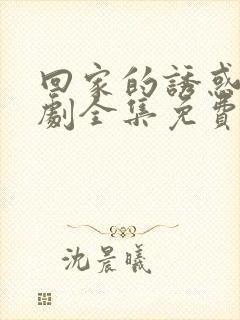 回家的誘惑
劇全集免費
沈晨曦